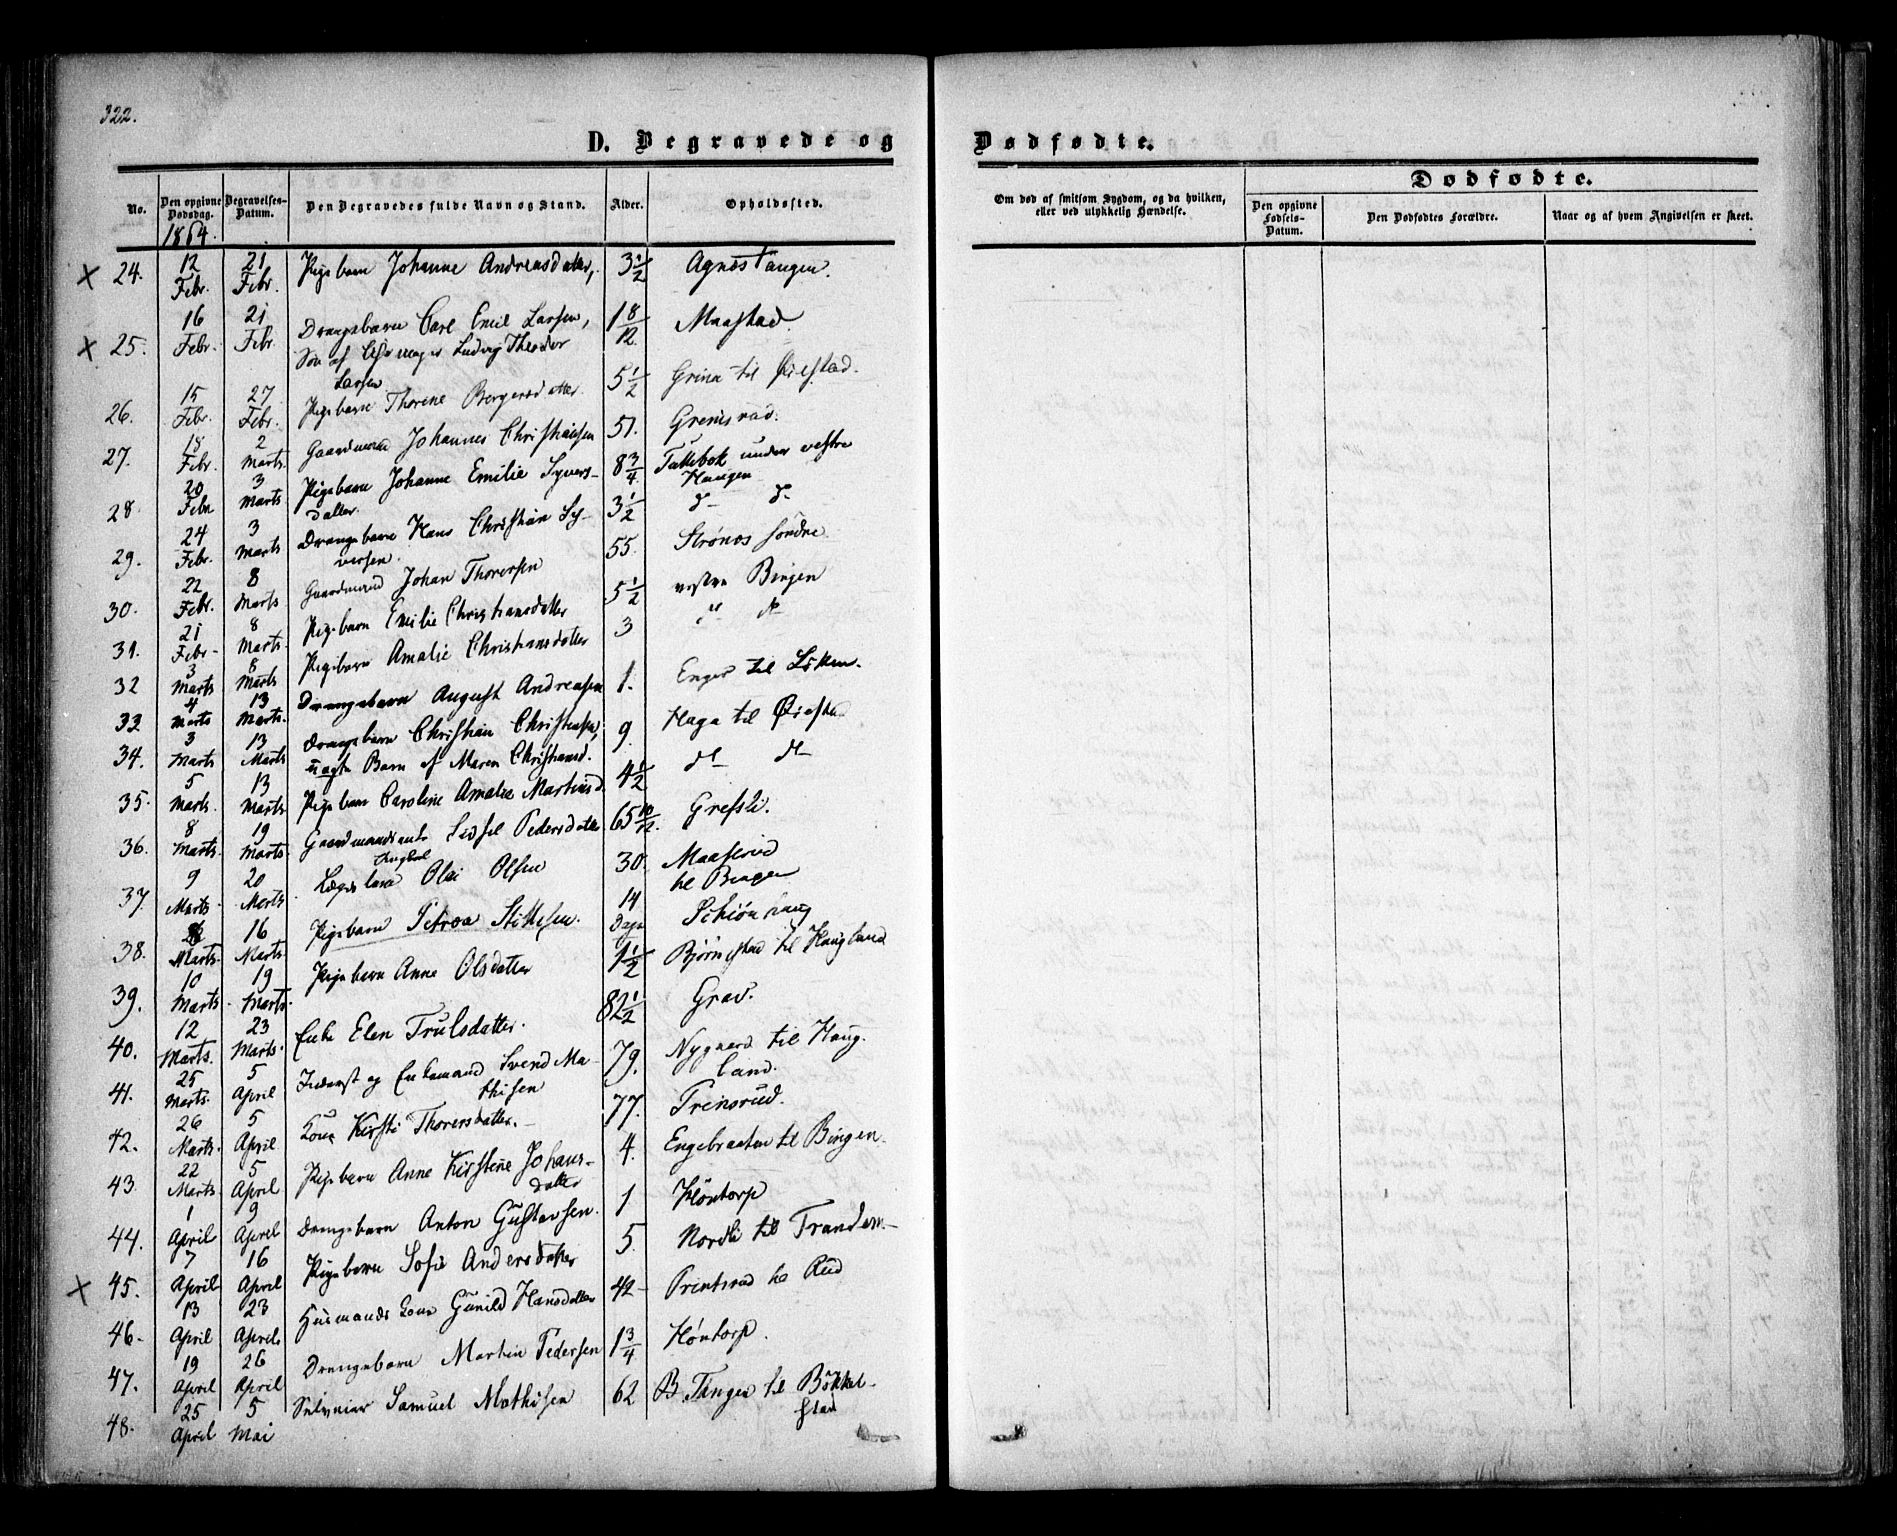 322.
D. Begravede og
Dødfødte.
No.
Den opgivne Dødsdag.
Begravelses-Datum.
Den Begravedes fulde Navn og Stand.
Alder.
Opholdssted.
Om død af smitsom Sygdom, og da hvilken, eller ved ulykkelig Hændelse.
Dødfødte.
Den opgivne Fødsels-Datum.
Den Dødfødtes Forældre.
Naar og af hvem Angivelsen er skeet.
1864.
× 24. 12 Febr. 21 Febr. Pigebarn Johanne Andreasdatter, 3 1/2 Agnæstangen.
× 25. 16 Febr. 21 Febr. Drengebarn Carl Emil Larsen, 1 8/12 Maastad.
Søn af Uhrmager Ludvig Theodor
Larsen
26. 15 Febr. 27 Febr. Pigebarn Thorine Bergersdatter. 5 1/2 Grina til Øiestad.
27. 18 Febr. 2 Marts. Gaardmand Johannes Christiansen 51. Gremsrud.
28. 20 Febr 3 Marts Pigebarn Johanne Emilie Syvers- 8 3/4 under vestre
datter. Haugen
29. 24 Febr. 3 Marts Drengebarn Hans Christian Sy- 3 1/2 d- d-
versen.
30. 22 Febr. 8 Marts Gaardmand Johan Thorersen 55. Strønæs søndre
31. 21 Febr- 8 Marts. Pigebarn Emilie Christiansdatter 5 1/2 vestre Bingen
32 3 Marts 8 Marts Pigebarn Amalie Christiansdatter 3 d- d-
33 4 Marts 13 Marts. Drengebarn August Andreasen 1. Enger til Løken.
34. 3 Marts 13 Marts Drengebarn Christian Christiansen, 9. Haga til Øiestad
uægte Barn af Maren Christiansd.
35. 5 Marts. 13 Marts Pigebarn Caroline Amalie Martinsd. 4 1/2 d- d-
36. 8 Marts. 19 Marts. Gaardmandsenke Sidsel Pedersdatter 65 10/12. Grefsli.
37. 9 Marts. 20 Marts. Ungkarl
Olai Olsen 30. Maaserud
til Bingen
38. Marts. 16 Marts. Pigebarn Petrea 14 Dage
39. 10 Marts. 19 Marts. Pigebarn Anne Olsdatter 1 1/2 Bjørnstad til Haugland
40. 12 Marts. 23 Marts. Enke Elen Trulsdatter. 82 1/2 Grav.
41. 25 Marts. 5 April Inderst og Enkemand Svend Ma- 79. Nygaard til Haug-
thisen land.
42. 26 Marts. 5 April Kone Kirsti Thorersdatter. 77. Trensrud.
43. 22 Marts. 5 April Pigebarn Anne Kirstine Johans- 4. Engebraaten til Bingen.
datter
44. 1 April 9 April Drengebarn Anton Gustavsen. 1 Høntorp
× 45. 7 April 16 April Pigebarn Sofie Andersdatter 5. Nordli til Trandem
46. 13 April 23 April Husmands Kone Gunild Hansdatter 42 til Rud
47. 19 April 26 April Drengebarn Martin Pedersen 1 3/4 Høntorp.
48. 25 April 5 Mai Samuel Mathisen 62 B. Tangen til Bökkel-
stad